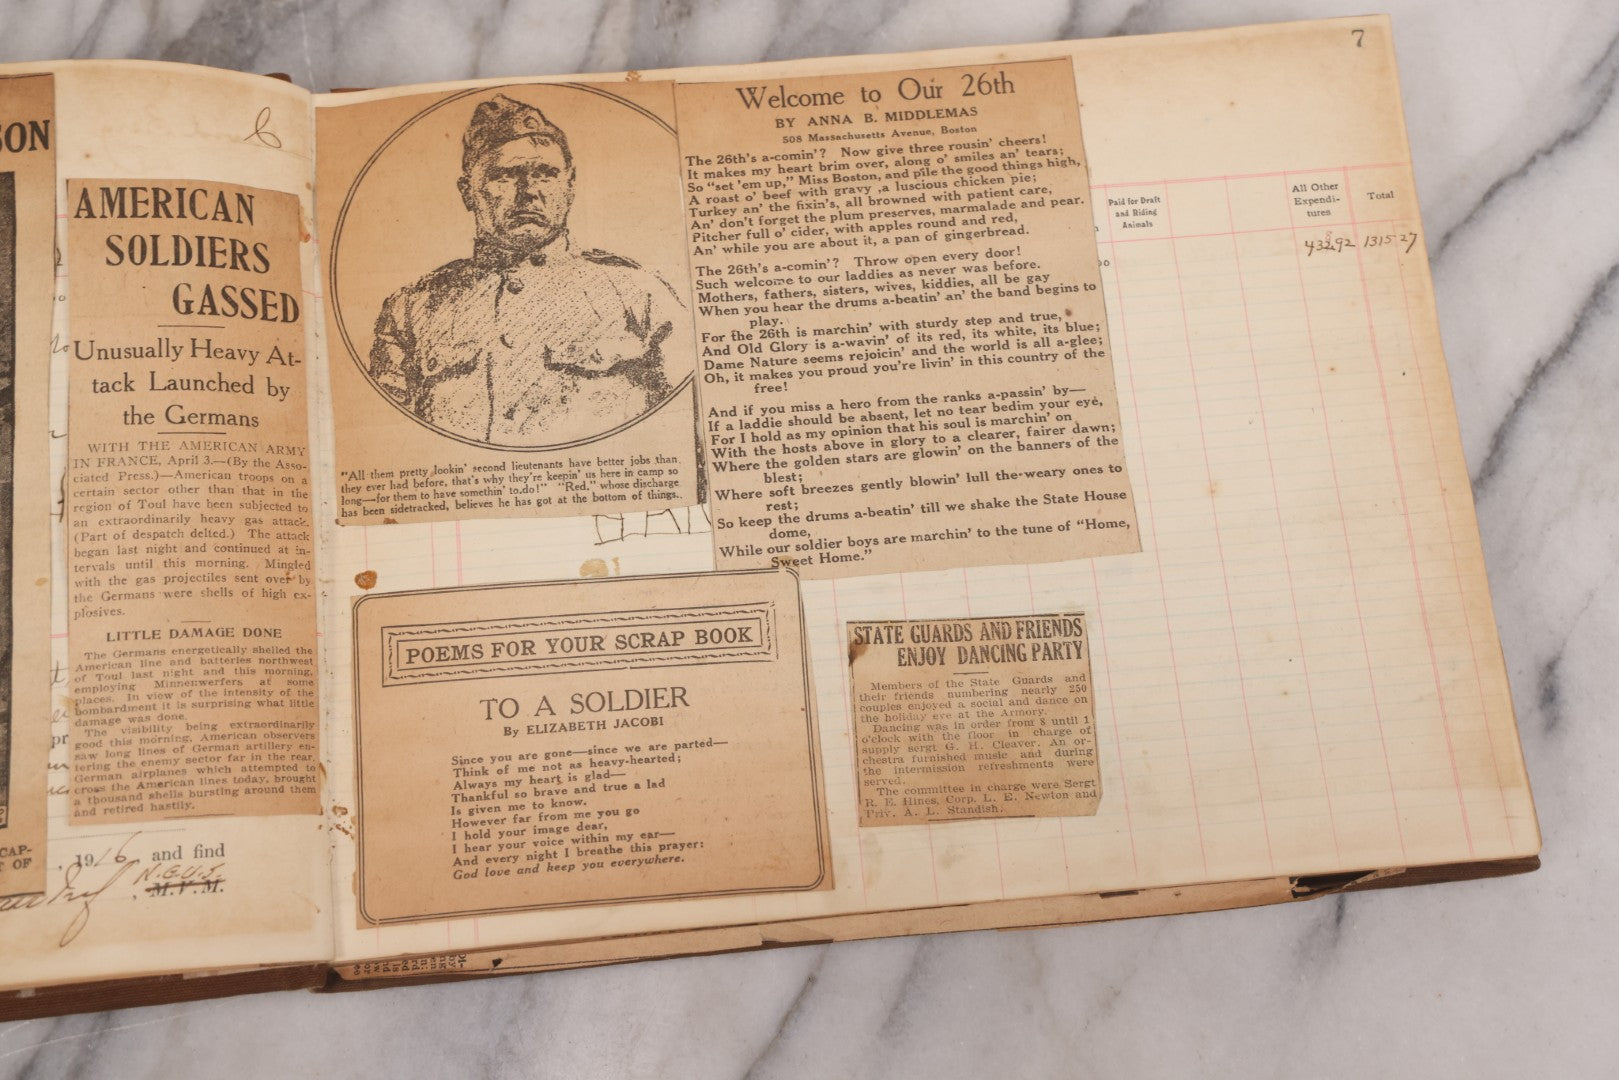 SON
6
AMERICAN
SOLDIERS
GASSED
Unusually Heavy At-
tack Launched by
the Germans
WITH THE AMERICAN ARMY
IN FRANCE, April 3.—(By the Asso-
ciated Press.)—American troops on a
certain sector other than that in the
region of Toul have been subjected to
an extraordinarily heavy gas attack.
(Part of despatch delted.) The attack
began last night and continued at in-
tervals until this morning. Mingled
with the gas projectiles sent over by
the Germans were shells of high ex-
plosives.
LITTLE DAMAGE DONE
The Germans energetically shelled the
American line and batteries northwest
of Toul last night and this morning,
employing Minnenwerfers at some
places. In view of the intensity of the
bombardment it is surprising what little
damage was done.
The visibility being extraordinarily
good this morning, American observers
saw long lines of German artillery en-
tering the enemy sector far in the rear.
German airplanes which attempted to
cross the American lines today, brought
a thousand shells bursting around them
and retired hastily.
CAP-
T OF
1916 and find
N.G.U.S.
M.V.M.
7
"All them pretty lookin' second lieutenants have better jobs than
they ever had before, that's why they're keepin' us here in camp so
long—for them to have somethin' to do!" "Red," whose discharge
has been sidetracked, believes he has got at the bottom of things.
Welcome to Our 26th
BY ANNA B. MIDDLEMAS
508 Massachusetts Avenue, Boston
The 26th's a-comin'? Now give three rousin' cheers!
It makes my heart brim over, along o' smiles an' tears;
So "set 'em up," Miss Boston, and pile the good things high,
A roast o' beef with gravy ,a luscious chicken pie;
Turkey an' the fixin's, all browned with patient care,
An' don't forget the plum preserves, marmalade and pear.
Pitcher full o' cider, with apples round and red,
An' while you are about it, a pan of gingerbread.
The 26th's a-comin'? Throw open every door!
Such welcome to our laddies as never was before.
Mothers, fathers, sisters, wives, kiddies, all be gay
When you hear the drums a-beatin' an' the band begins to
play.
For the 26th is marchin' with sturdy step and true,
And Old Glory is a-wavin' of its red, its white, its blue;
Dame Nature seems rejoicin' and the world is all a-glee;
Oh, it makes you proud you're livin' in this country of the
free!
And if you miss a hero from the ranks a-passin' by—
If a laddie should be absent, let no tear bedim your eye,
For I hold as my opinion that his soul is marchin' on
With the hosts above in glory to a clearer, fairer dawn;
Where the golden stars are glowin' on the banners of the
blest;
Where soft breezes gently blowin' lull the weary ones to
rest;
So keep the drums a-beatin' till we shake the State House
dome,
While our soldier boys are marchin' to the tune of "Home,
Sweet Home."
Paid for Draft
and Riding
Animals
All Other
Expendi-
tures
Total
1315 27
POEMS FOR YOUR SCRAP BOOK
TO A SOLDIER
By ELIZABETH JACOBI
Since you are gone—since we are parted—
Think of me not as heavy-hearted;
Always my heart is glad—
Thankful so brave and true a lad
Is given me to know.
However far from me you go
I hold your image dear,
I hear your voice within my ear—
And every night I breathe this prayer:
God love and keep you everywhere.
STATE GUARDS AND FRIENDS
ENJOY DANCING PARTY
Members of the State Guards and
their friends numbering nearly 250
couples enjoyed a social and dance on
the holiday eve at the Armory.
Dancing was in order from 8 until 1
o'clock with the floor in charge of
supply sergt G. H. Cleaver. An or-
chestra furnished music and during
the intermission refreshments were
served.
The committee in charge were Sergt
R. E. Hines, Corp. L. E. Newton and
Priv. A. L. Standish.